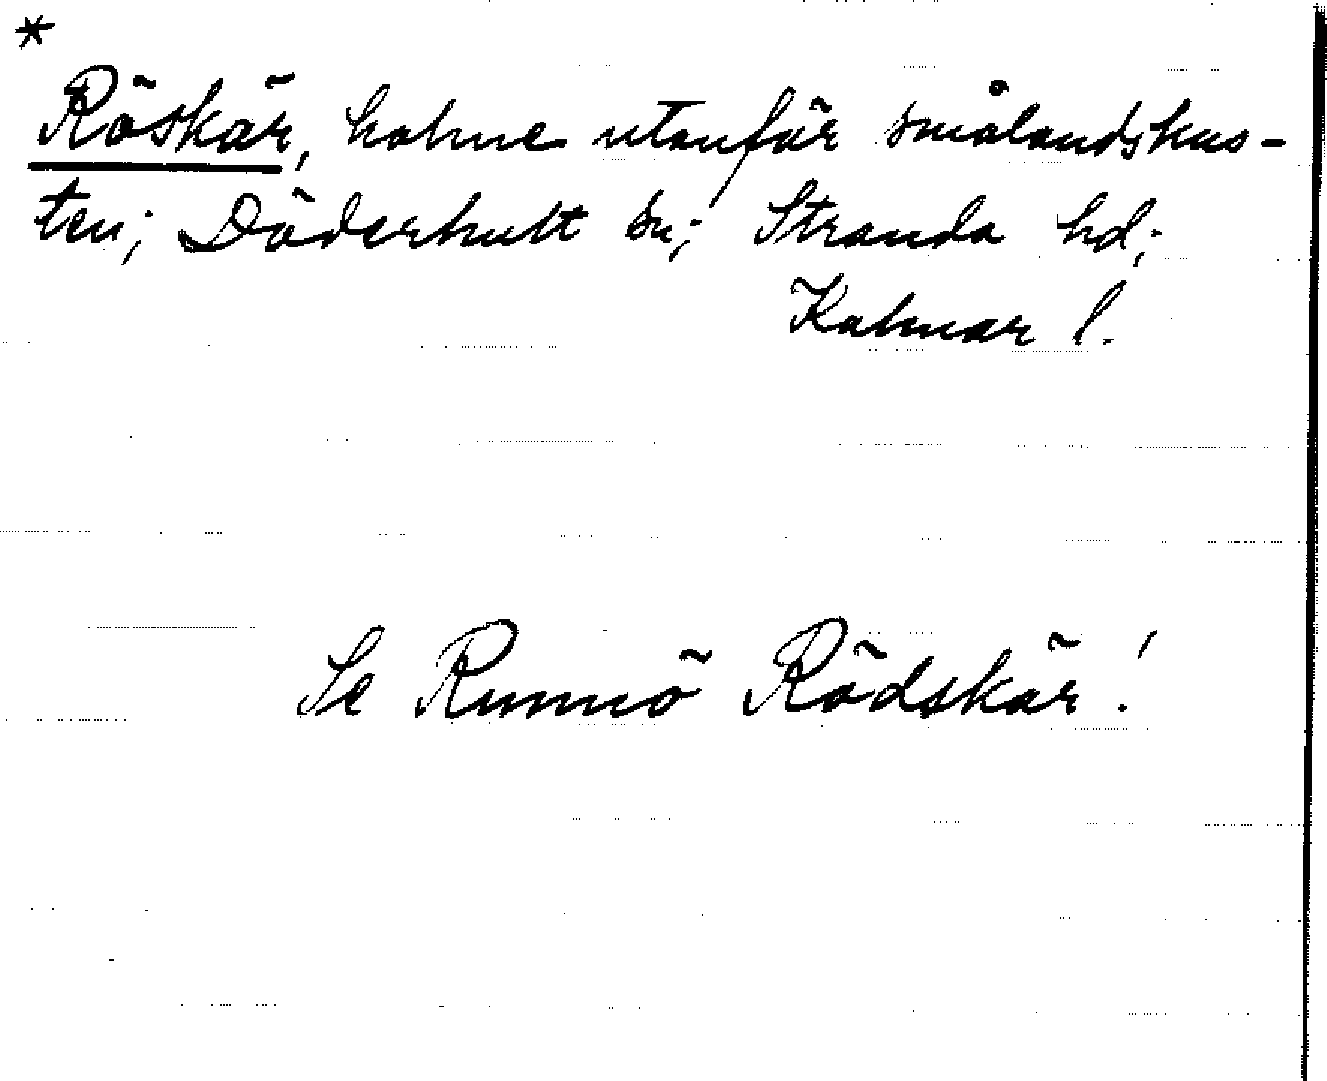 *
Röskär, holme utanför smålandskus-
ten; Döderhult sn; Stranda hd;
Kalmar l.
Se Runnö Rödskär!